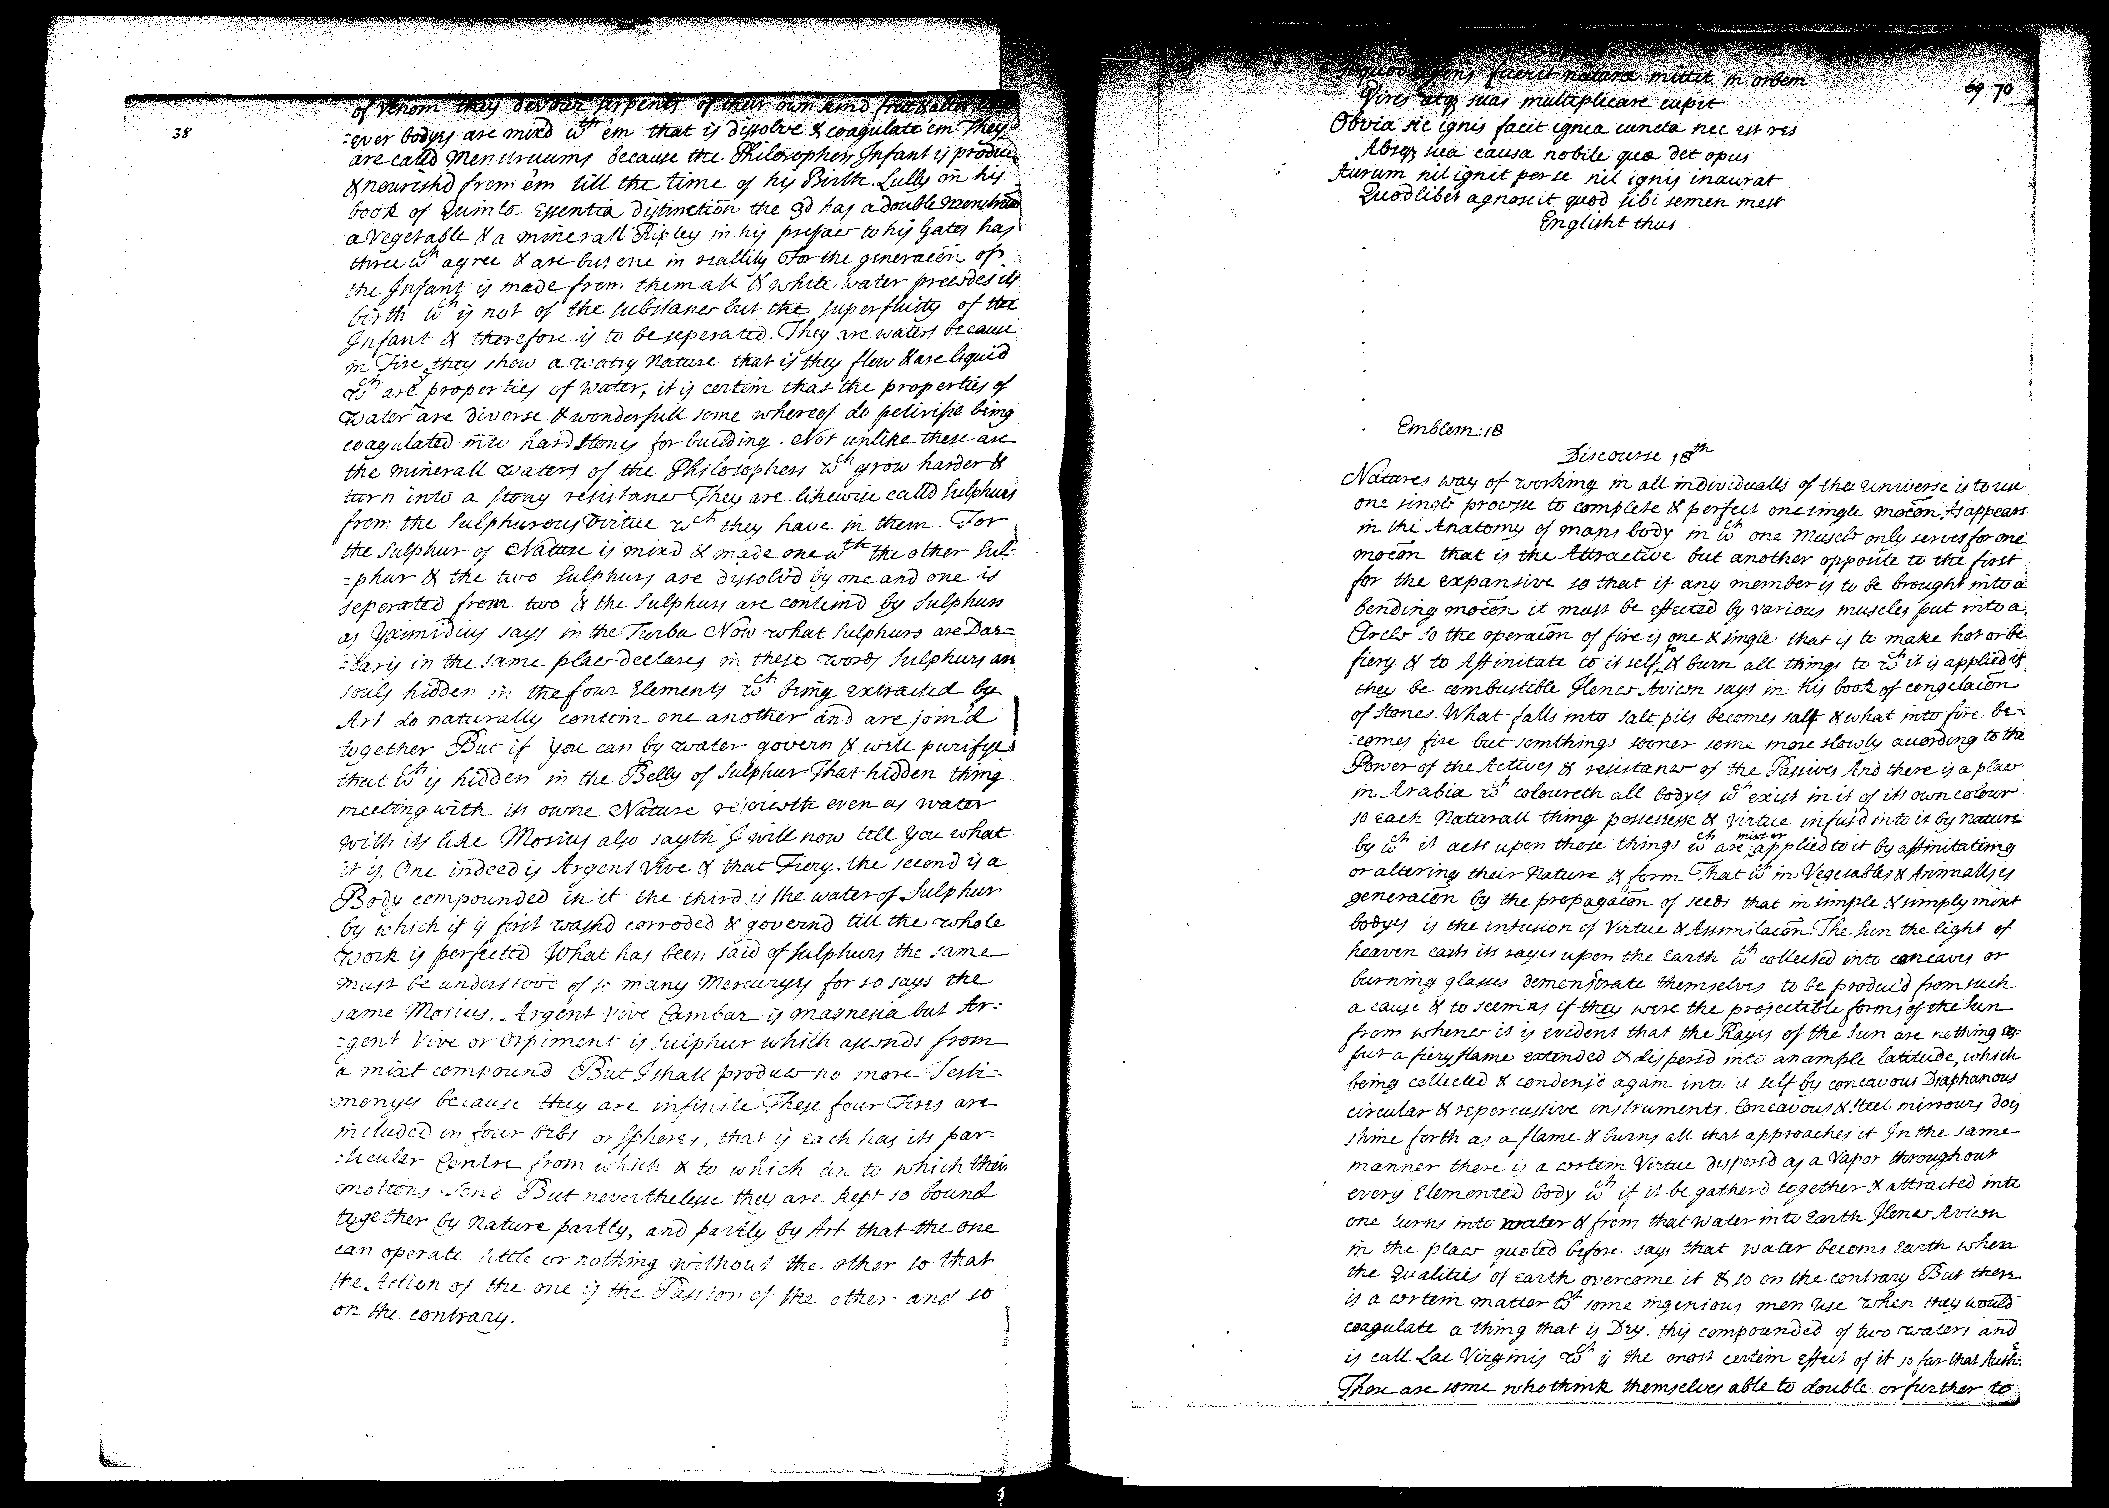 38
of Venom they devour serpents of their own kind
=ever bodyes are mixd wth em that is dissolve & coagulate em They
are calld Menstruums because the Philosophers Infant is produc
& nourishd from em till the time of his Birth. Lully in his
book of Quinta Essentia distinction the 3d has a double Menstruum
a Vegetable & a minerall Ripley in his preface to his Gates has
three wch agree & are but one in reallity For the generacōn of
the Infant is made from them all & white water precedes its
birth wch is not of the substance but the superfluity of the
Infant & therefore is to be seperated. They are waters because
in Fire they shew a watry Nature that is they flow & are liquid
wch are ye properties of water, it is certein that the properties of
Water are diverse & wonderfull some whereof do petrifie being
coagulated into hard stones for building. Not unlike these are
the minerall waters of the Philosophers wch grow harder &
turn into a stony resistance They are likewise calld Sulphurs
from the Sulphurous Virtue wch they have in them. For
the Sulphur of Nature is mixd & made one wth the other Sul=
=phur & the two Sulphurs are dissolvd by one and one is
seperated from two & the Sulphurs are conteind by Sulphurs
as Yximidius says in the Turba Now what Sulphurs are Dar=
=daris in the same place declares in these words Sulphurs are
souls hidden in the four Elements wch being extracted by
Art do naturally contein one another and are joind
together But if you can by water govern & well purifye
that wch is hidden in the Belly of Sulphur That hidden thing
meeting with its owne Nature rejoiceth even as water
with its like Mosius also sayth I will now tell you what
it is. One indeed is Argent Vive & that Fiery. the second is a
Body compounded in it the third is the water of Sulphur
by which it is first washd corroded & governd till the whole
work is perfected What has been said of Sulphurs the same
must be understood of so many Mercuryes for so says the
same Mosius. Argent Vive Cambar is magnesia but Ar=
=gent Vive or Orpiment is Sulphur which ascends from
a mixt compound But I shall produce no more Testi=
monyes because they are infinite These four Fires are
included in four Orbs or Spheres, that is each has its par=
=ticular Centre from which & to which to which their
motions tend But neverthelesse they are kept so bound
together by Nature partly, and partly by Art that the one
can operate little or nothing without the other so that
the Action of the one is the Passion of the other and so
on the contrary.
69 70
fuerit natura mittit in orbem
Vires atq suas multiplicare cupit
Obvia sic ignis facit ignea cuncta nec est res
Absq sua causa nobile quæ det opus
Aurum nil ignit per se nil ignis inaurat
Quodlibet agnoscit quod sibi semen inest
Englisht thus
Emblem: 18
Discourse 18th
Natures way of working in all individualls of the universe is to use
one single processe to complete & perfect one single mocōn. As appears
in the Anatomy of mans body in wch one Muscle only serves for one
mocōn that is the Attractive but another opposite to the first
for the expansive so that if any member is to be brought into a
bending mocōn it must be effected by various muscles put into a
Circle so the operacōn of fire is one & single that is to make hot or be
fiery & to Assimitate to it self & burn all things to wch it is applied if
they be combustible Hence Avicen says in his book of congelacōn
of Stones. What falls into salt pits becomes salt & what into fire be=
=comes fire but somthings sooner some more slowly according to the
Power of the Actives & resistance of the Passives And there is a place
in Arabia wch coloureth all bodyes wch exist in it of its own colour
so each Naturall thing possessesse & Virtue infusd into it by nature
by wch it acts upon those things wch are mixt or applied to it by assimitating
or altering their Nature & form That wch in Vegetables & Animalls is
generacōn by the propagacōn of seeds that in simple & simply mixt
bodyes is the infusion of Virtue & Assimilacōn. The Sun the light of
heaven casts its rayes upon the Earth wch collected into concaves or
burning glasses demonstrate themselves to be producd from such
a cause & to seem as if they were the projectible forms of the Sun
from whence it is evident that the Rayes of the Sun are nothing
but a fiery flame extended & dispersd into an ample latitude, which
being collected & condensd again into it self by concavous Diaphanous
circular & repercussive instruments. Concavous & Steel mirrours does
shine forth as a flame & burns all that approaches it In the same
manner there is a certein Virtue dispersd as a Vapor throughout
every Elemented body wch if it be gatherd together & attracted into
one turns into water & from that water into Earth Hence Avicen
in the place quoted before says that water becoms Earth when
the Qualities of Earth overcome it & so on the contrary But there
is a certein matter wch some ingenious men use when they would
coagulate a thing that is Dry. this compounded of two waters and
is call Lac Virginis wch is the most certein effect of it so far that Auth:
There are some who think themselves able to double or further to